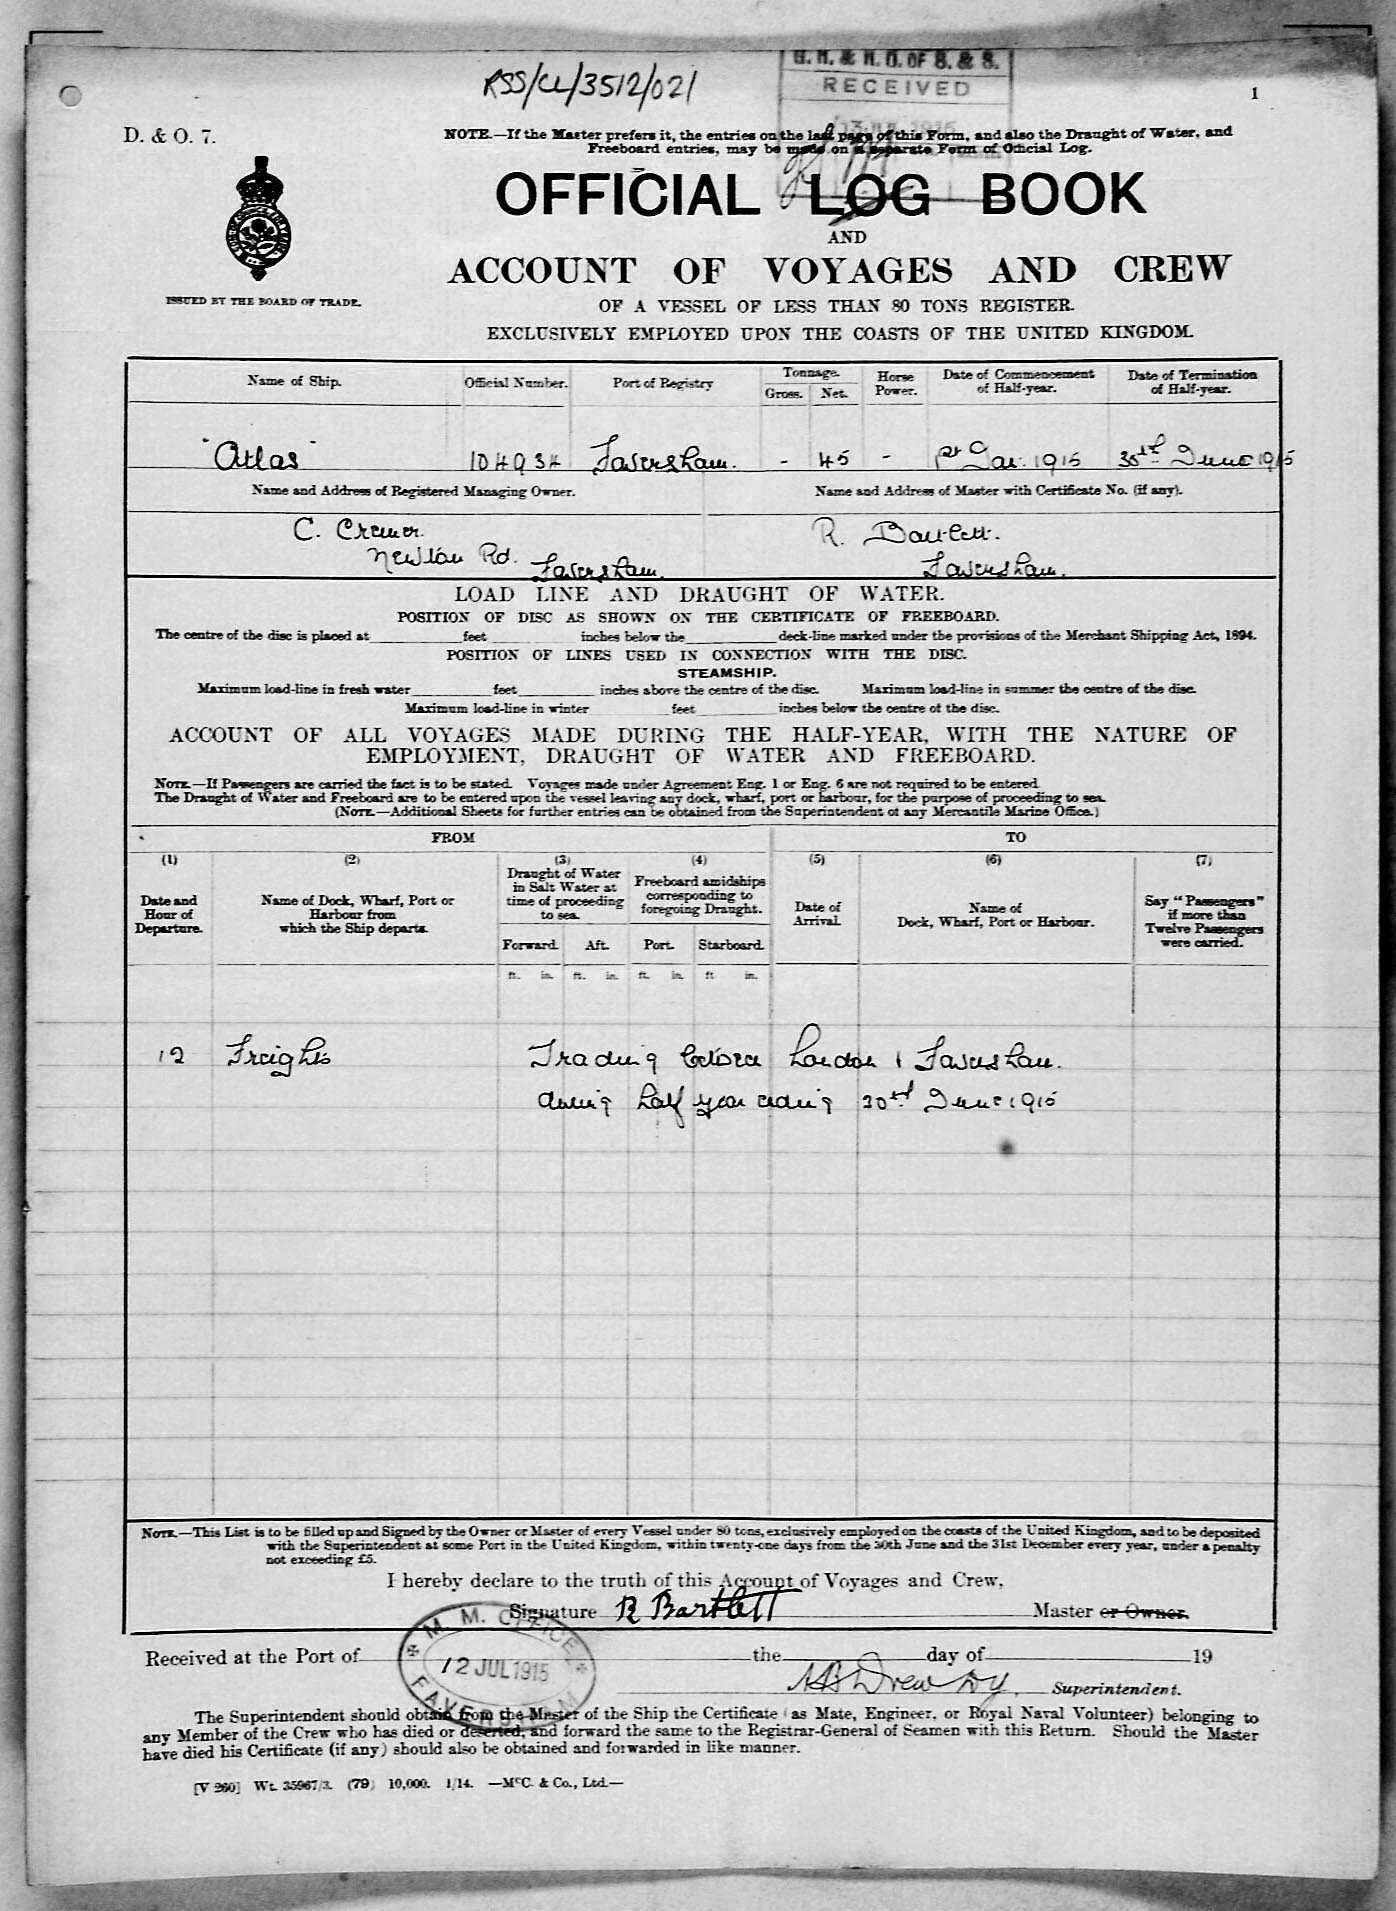 RSS/CL/3512/021
G. R. & R. O. OF S. & S.
RECEIVED
13 JUL 1915
1
D. & O. 7.
NOTE.—If the Master prefers it, the entries on the last page of this Form, and also the Draught of Water, and
Freeboard entries, may be made on a separate Form of Official Log.
OFFICIAL LOG BOOK
AND
ACCOUNT OF VOYAGES AND CREW
ISSUED BY THE BOARD OF TRADE.
OF A VESSEL OF LESS THAN 80 TONS REGISTER.
EXCLUSIVELY EMPLOYED UPON THE COASTS OF THE UNITED KINGDOM.
Name of Ship. Official Number. Port of Registry Tonnage. Gross. Net. Horse Power. Date of Commencement of Half-year. Date of Termination of Half-year.
"Atlas" 104934 Faversham. - 45 - 1st Jan. 1915 30th June 1915
Name and Address of Registered Managing Owner. Name and Address of Master with Certificate No. (if any).
C. Cremer. R. Bartlett.
Newton Rd. Faversham. Faversham.
LOAD LINE AND DRAUGHT OF WATER.
POSITION OF DISC AS SHOWN ON THE CERTIFICATE OF FREEBOARD.
The centre of the disc is placed at feet inches below the deck-line marked under the provisions of the Merchant Shipping Act, 1894.
POSITION OF LINES USED IN CONNECTION WITH THE DISC.
STEAMSHIP.
Maximum load-line in fresh water feet inches above the centre of the disc. Maximum load-line in summer the centre of the disc.
Maximum load-line in winter feet inches below the centre of the disc.
ACCOUNT OF ALL VOYAGES MADE DURING THE HALF-YEAR, WITH THE NATURE OF
EMPLOYMENT, DRAUGHT OF WATER AND FREEBOARD.
NOTE.—If Passengers are carried the fact is to be stated. Voyages made under Agreement Eng. 1 or Eng. 6 are not required to be entered.
The Draught of Water and Freeboard are to be entered upon the vessel leaving any dock, wharf, port or harbour, for the purpose of proceeding to sea.
(NOTE.—Additional Sheets for further entries can be obtained from the Superintendent of any Mercantile Marine Office.)
FROM TO
(1) (2) (3) (4) (5) (6) (7)
Date and Hour of Departure. Name of Dock, Wharf, Port or Harbour from which the Ship departs. Draught of Water in Salt Water at time of proceeding to sea. Freeboard amidships corresponding to foregoing Draught. Date of Arrival. Name of Dock, Wharf, Port or Harbour. Say "Passengers" if more than Twelve Passengers were carried.
Forward. Aft. Port. Starboard.
ft. in. ft. in. ft. in. ft. in.
12 Freights Trading between London & Faversham.
during half year ending 30th June 1915
NOTE.—This List is to be filled up and Signed by the Owner or Master of every Vessel under 80 tons, exclusively employed on the coasts of the United Kingdom, and to be deposited
with the Superintendent at some Port in the United Kingdom, within twenty-one days from the 30th June and the 31st December every year, under a penalty
not exceeding £5.
I hereby declare to the truth of this Account of Voyages and Crew,
Signature R Bartlett Master or Owner.
M. M. OFFICE
12 JUL 1915
FAVERSHAM
Received at the Port of the day of 19
Superintendent.
The Superintendent should obtain from the Master of the Ship the Certificate (as Mate, Engineer, or Royal Naval Volunteer) belonging to
any Member of the Crew who has died or deserted, and forward the same to the Registrar-General of Seamen with this Return. Should the Master
have died his Certificate (if any) should also be obtained and forwarded in like manner.
[V 260] Wt. 35967/3. (79) 10,000. 1/14. —McC. & Co., Ltd.—